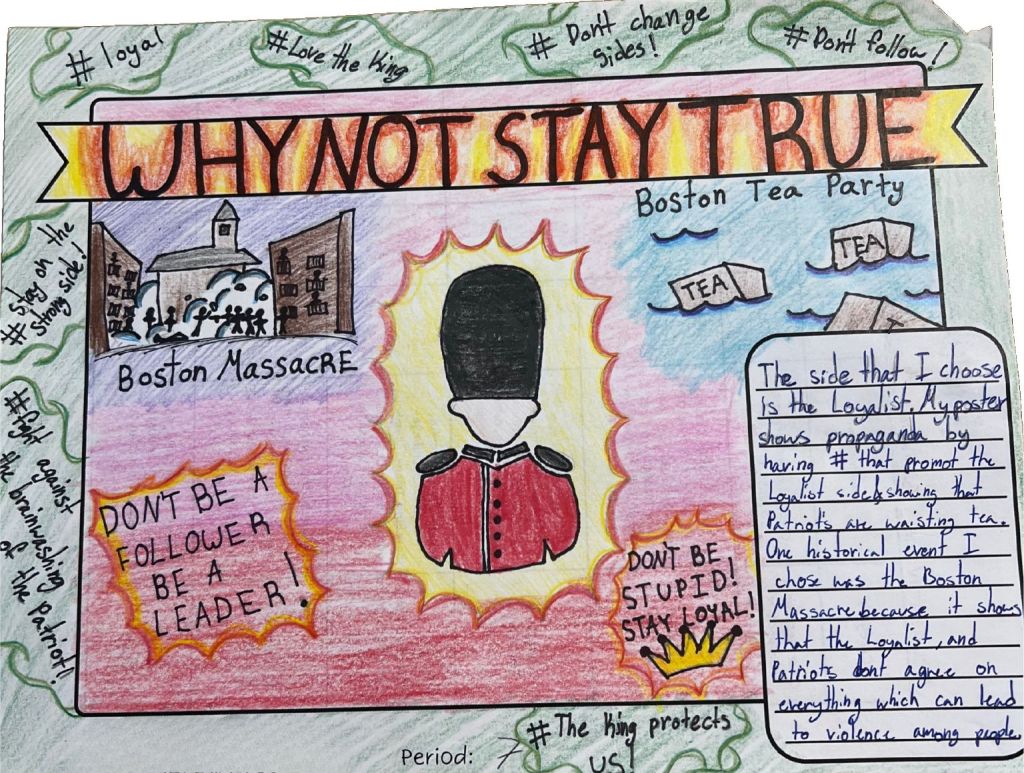 # loyal
# Love the King
# Don't change
sides!
# Don't follow!
WHY NOT STAY TRUE
# Stay on the
strong side!
# fight against
the brainwashing
of the patriot!!
Boston Massacre
Boston Tea Party
TEA
TEA
T
DON'T BE A
FOLLOWER
BE A
LEADER!
DON'T BE
STUPID!
STAY LOYAL!
The side that I choose
is the Loyalist. My poster
shows propaganda by
having # that promot the
Loyalist side & showing that
Patriot's are waisting tea.
One historical event I
chose was the Boston
Massacre because it shows
that the Loyalist, and
Patriots dont agree on
everything which can lead
to violence among people
# The King protects
us!
Period: 7